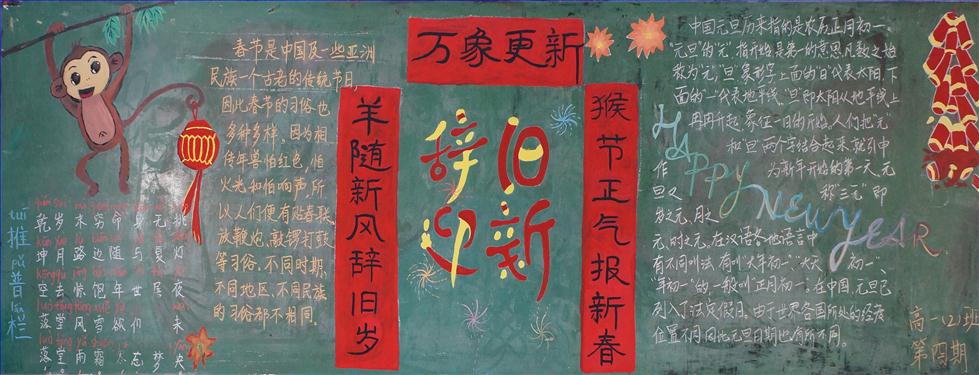 万象更新
羊随新风辞旧岁
猴节正气报新春
辞旧
迎新
春节是中国及一些亚洲
民族一个古老的传统节日,
因此春节的习俗也
多种多样。因为相
传年兽怕红色,怕
火光和怕响声所
以人们便有贴春联
放鞭炮,敲锣打鼓
等习俗,不同时期,
不同地区、不同民族
的习俗都不相同。
推普栏
乾岁未穷命身无挑
坤月路边随与灯
空去恨饱年世居夜
落堂风雪欲们未
落堂雨霜忘梦央
中国元旦历来指的是农历正月初一
"元旦"的"元"指开始是第一的意思凡数之始
称为"元","旦"象形字上面的"日"代表太阳,下
面的"一"代表地平线。"旦"即太阳从地平线上
冉冉升起,象征一日的开始。人们把"元"
和"旦"两个字结合起来,就引申
作为新年开始的第一天。元
旦又称"三元"即
岁之元、月之
元、时之元。在汉语各地语言中
有不同叫法,有叫"大年初一""大天初一"、
"年初一"的一般叫正月初一。在中国,元旦已
列入了法定假日。由于世界各国所处的经度
位置不同因此元旦日期也有所不同。
HAPPY
NEW YEAR
高一(2)班
第四期